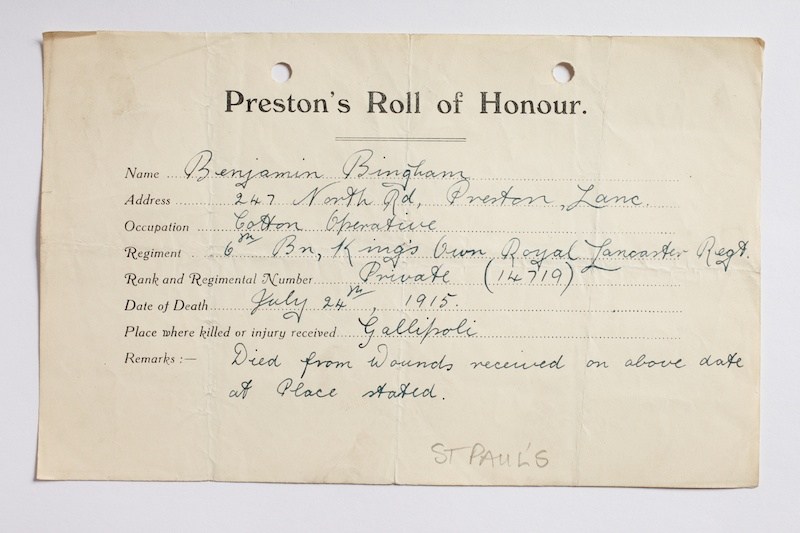 Preston's Roll of Honour.
Name Benjamin Bingham
Address 247 North Rd, Preston, Lanc.
Occupation Cotton Operative
Regiment 6th Bn, King's Own Royal Lancaster Regt.
Rank and Regimental Number Private (14719)
Date of Death July 24th, 1915.
Place where killed or injury received Gallipoli
Remarks :— Died from Wounds received on above date
at Place stated.
ST PAUL'S